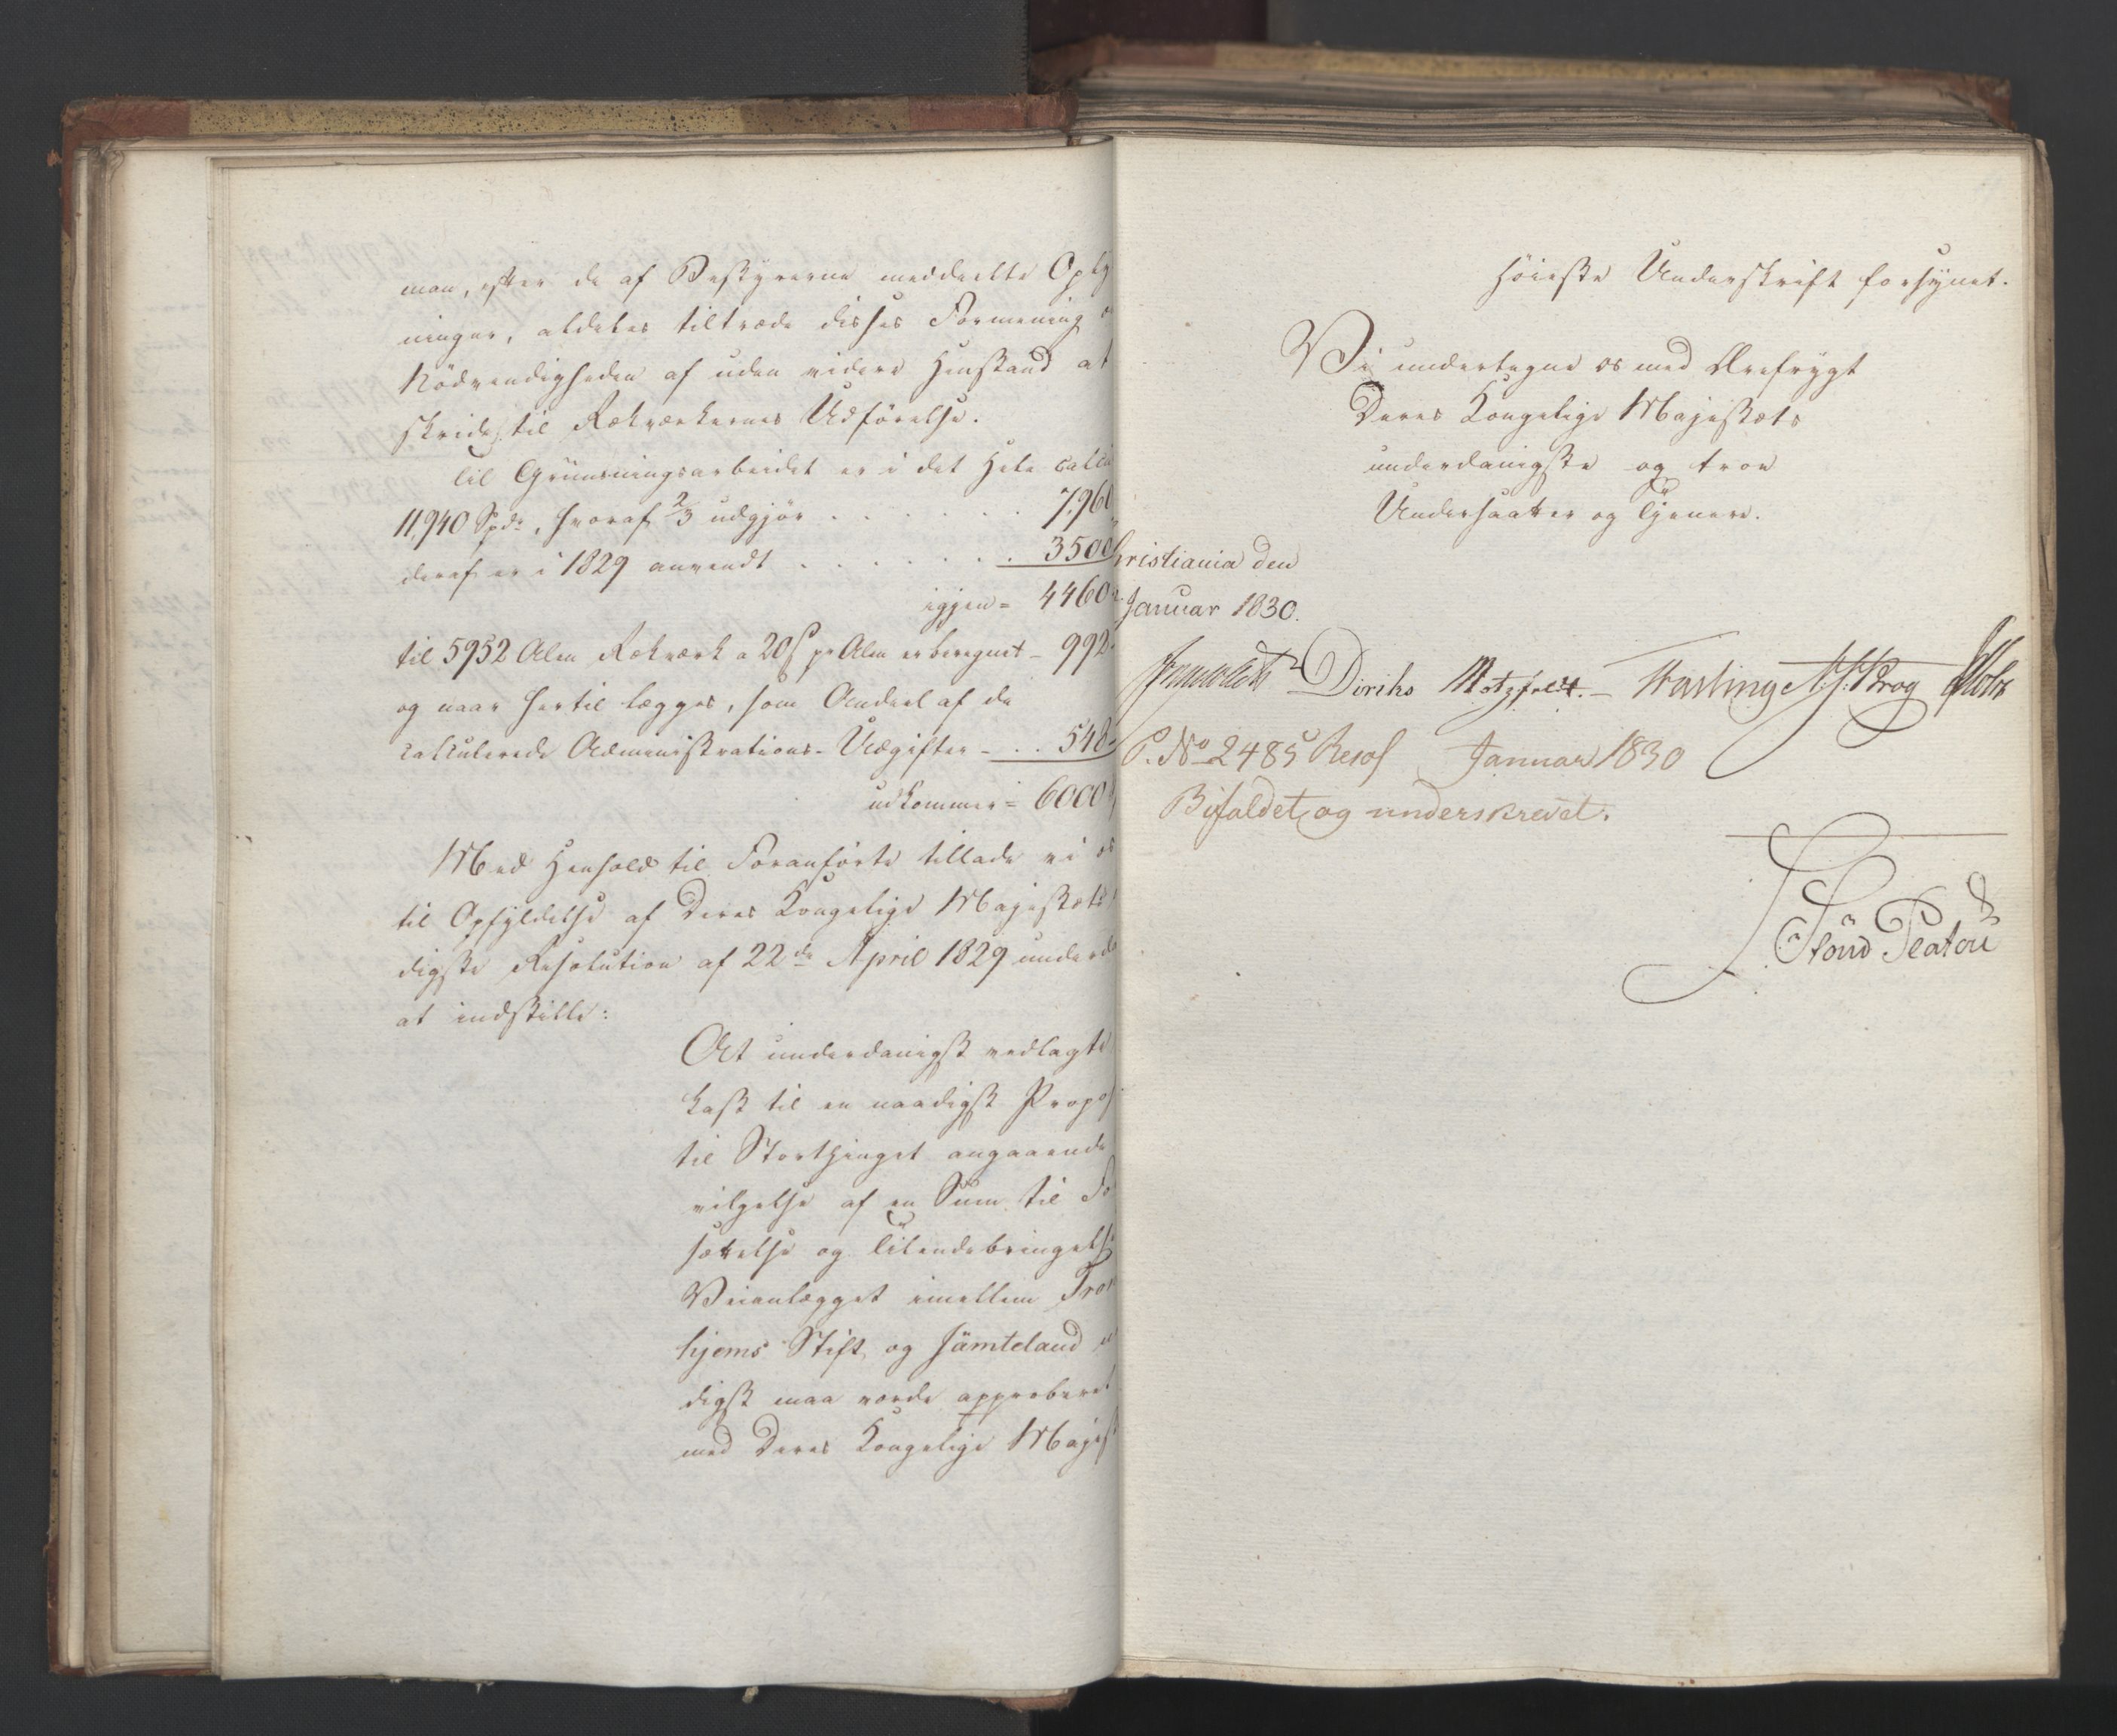 man, efter de af Bestyrerne meddeelte Oply
ninger, aldeles tiltræde disses Formening o
Nödvendigheden af uden videre Henstand at
skride til Rækværkernes Udförelse.
Til Gruusningsarbeidet er i det Hele calcu
11,940 Spdr, hvoraf 2/3 udgjör . . . . . . . 7,960
deraf er i 1829 anvendt . . . . . . . 3500
igjen = 4460
til 5952 Alen Rækværk a 20 ß pr Alen er beregnet - 992
og naar hertil lægges, som Andeel af de
calculerede Administrations-Udgifter - . . 548
udkommer = 6000
Med Henhold til Foranförte tillade vi os
til Opfyldelse af Deres Kongelige Majestæts
digste Resolution af 22de April 1829 underda
at indstille:
At underdanigst vedlagte
kast til en naadigst Propos
til Storthinget angaaende
vilgelse af en Sum til Fo
sættelse og Tilendebringelse
Veianlægget imellem Tron
hjems Stift og Jämteland n
digst maa vorde approberet
med Deres Kongelige Majest
Höieste Underskrift forsynet.
Vi undertegne os med Ærefrygt
Deres Kongelige Majestæts
underdanigste og troe
Undersaatter og Tjenere.
hristiania den
Januar 1830.
Diriks Motzfeldt. - Fasting Krog Holst
P. No 2485 Resol Januar 1830
Bifaldet og underskrevet.
Stoud Platou